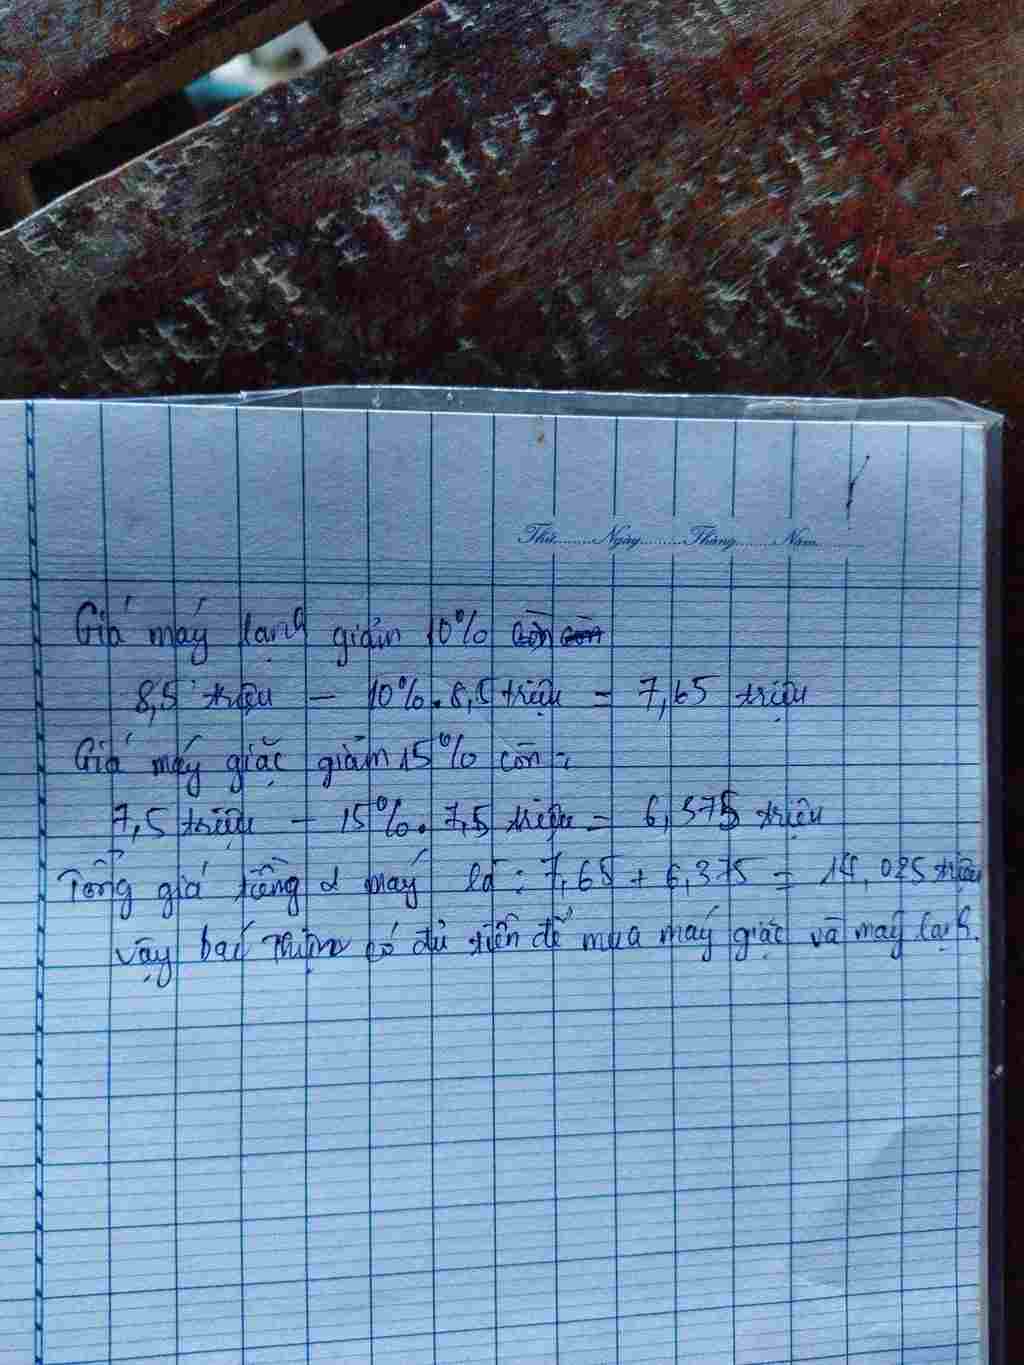 Thứ........Ngày........Tháng........Năm..........
Giá máy lạnh giảm 10%
8,5 triệu - 10%.8,5 triệu = 7,65 triệu
Giá máy giặc giảm 15% còn:
7,5 triệu - 15%.7,5 triệu = 6,375 triệu
Tổng giá tiềng 2 máy là: 7,65 + 6,375 = 14,025 triệu
vậy bác Thịnh có đủ tiền để mua máy giặc và máy lạnh.